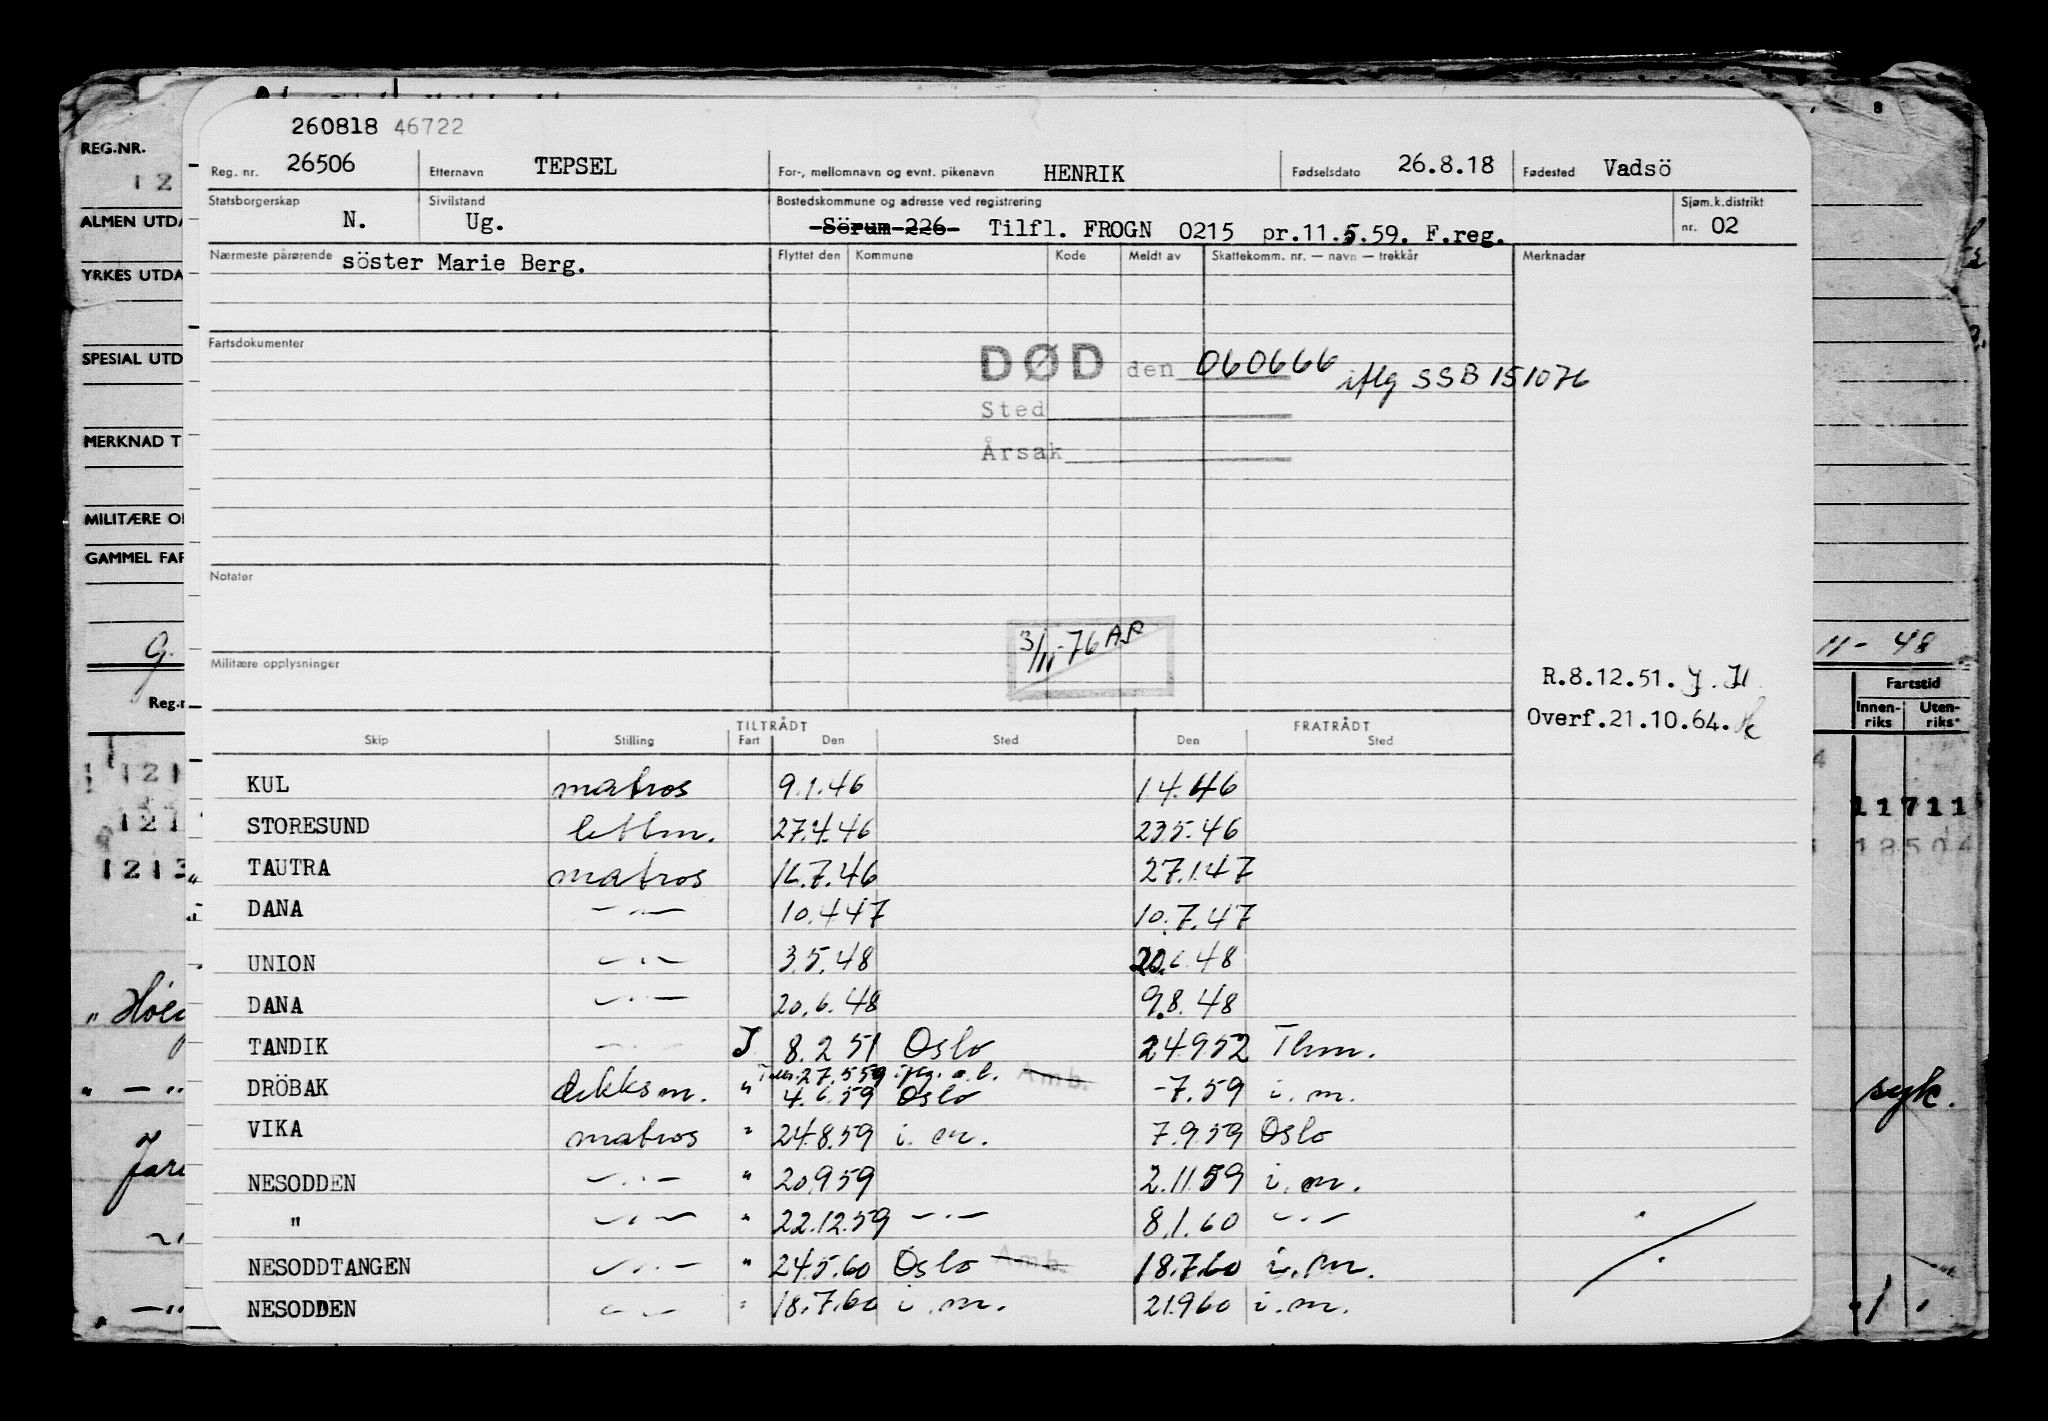 260818 46722
Reg. nr. 26506 Etternavn TEPSEL For-, mellomnavn og evnt. pikenavn HENRIK Fødselsdato 26.8.18 Fødested Vadsö
Statsborgerskap N. Sivilstand Ug. Bostedskommune og adresse ved registrering Sörum 226 Tilfl. FROGN 0215 pr.11.5.59. F.reg. Sjøm.k.distrikt nr. 02
Nærmeste pårørende söster Marie Berg. Flyttet den Kommune Kode Meldt av Skattekomm. nr. — navn — trekkår Merknadar
Fartsdokumenter
DØD den 060666 iflg SSB 151076
Sted
Årsak
Notater
3/11-76 AP
Militære opplysninger
R.8.12.51.
Overf.21.10.64.
TILTRÅDT FRATRÅDT
Skip Stilling Fart Den Sted Den Sted
KUL matros 9.1.46 1.4.46
STORESUND lettm. 27.4.46 23.5.46
TAUTRA matros 16.7.46 27.1.47
DANA —"— 10.4.47 10.7.47
UNION —"— 3.5.48 20.6.48
DANA —"— 20.6.48 9.8.48
TANDIK —"— J 8.2 51 Oslo 24.9.52 Thm.
27.5.59 iflg. Amb.
DRÖBAK dekksm. " 4.6.59 Oslo -7.59 i.m.
VIKA matros " 24.8.59 i.m. 7.9.59 Oslo
NESODDEN —"— " 20.9.59 2.11.59 i.m.
" —"— " 22.12.59 —"— 8.1.60 —"—
NESODDTANGEN —"— " 24.5.60 Oslo Amb. 18.7.60 i.m.
NESODDEN —"— " 18.7.60 i.m. 21.9.60 i.m.
REG.NR.
12
ALMEN UTDA
YRKES UTDA
SPESIAL UTD
MERKNAD T
MILITÆRE O
GAMMEL FAR
G.
Reg.n
121
121
1213
" Høeg
" —"
—"
" —"
11-48
Fartstid
Innen-riks Uten-riks
11711
18504
syk.
1